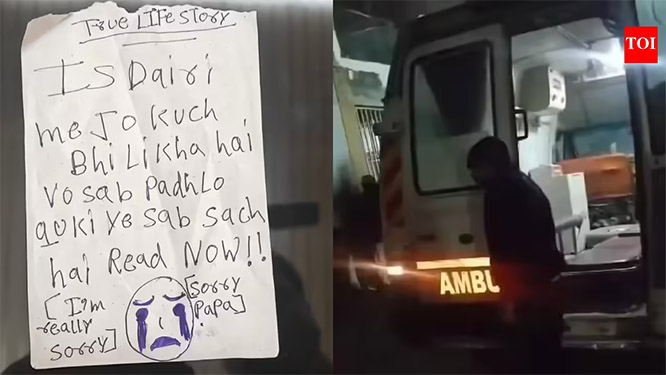 TRUE LIFE STORY
Is Dairi
me Jo kuch
Bhi Likha hai
Vo sab Padhlo
quki ye sab sach
hai Read NOW!!
[I'm really sorry]
[sorry Papa]
TOI
AMBU